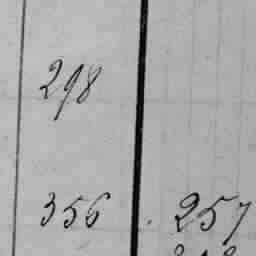 298
356 . 257